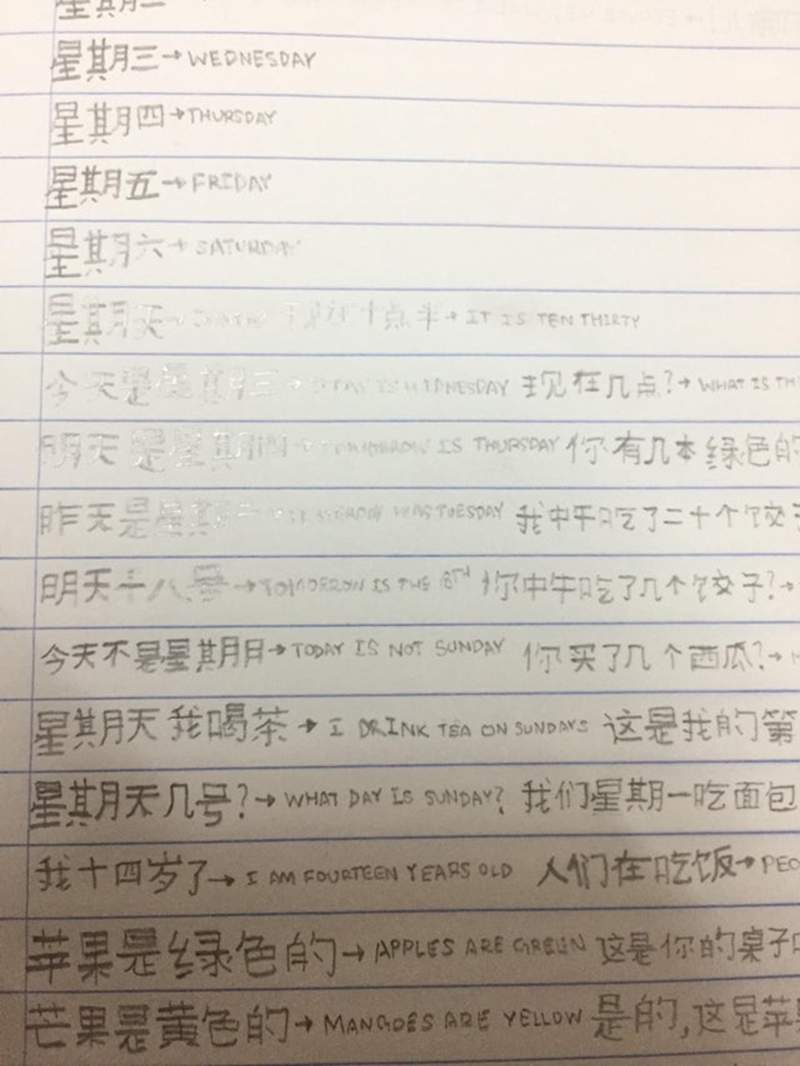 星期二
星期三→WEDNESDAY
星期四→THURSDAY
星期五→FRIDAY
星期六→SATURDAY
星期天→ 现在十点半→IT IS TEN THIRTY
今天是星期三→TODAY IS WEDNESDAY 现在几点?→WHAT IS
明天是星期四→TOMORROW IS THURSDAY 你有几本绿色的
昨天是星期二→ WAS TUESDAY 我中午吃了二十个饺子
明天十八号→TOMORROW IS THE 18TH 你中午吃了几个饺子?→
今天不是星期日→TODAY IS NOT SUNDAY 你买了几个西瓜?→
星期天我喝茶→I DRINK TEA ON SUNDAYS 这是我的第
星期天几号?→WHAT DAY IS SUNDAY? 我们星期一吃面包
我十四岁了→I AM FOURTEEN YEARS OLD 人们在吃饭→PEO
苹果是绿色的→APPLES ARE GREEN 这是你的桌子
芒果是黄色的→MANGOES ARE YELLOW 是的,这是苹